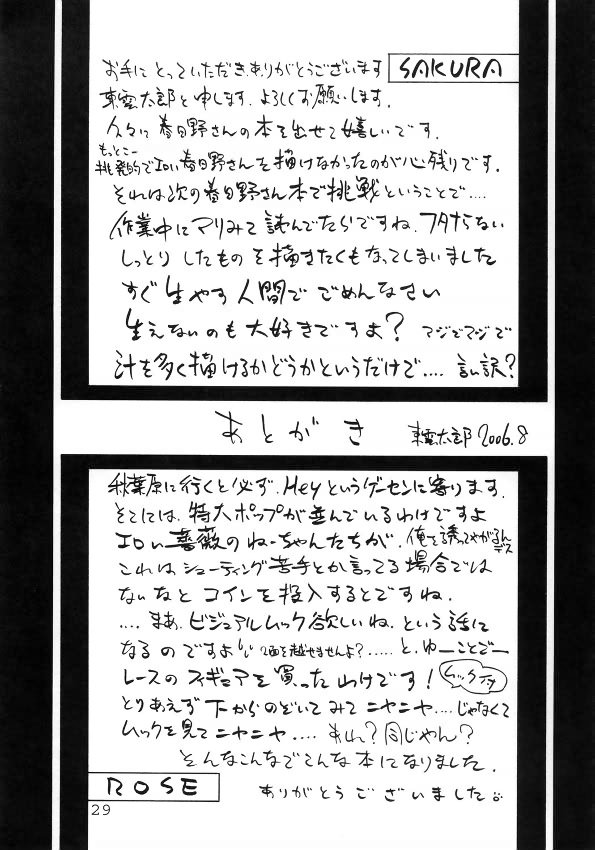 SAKURA
お手にとっていただきありがとうございます
東雲太郎と申します。よろしくお願いします。
久々に春日野さんの本を出せて嬉しいです。
もっとこー
挑発的でエロい春日野さんを描けなかったのが心残りです。
それは次の春日野さん本で挑戦ということで....
作業中にマリみて読んでたらですね、フタナらない
しっとりしたものを描きたくもなってしまいました
すぐ生やす人間でごめんなさい
生えないのも大好きですよ? マジでマジで
汁を多く描けるかどうかというだけで.... 言い訳?
あとがき 東雲太郎 2006.8
秋葉原に行くと必ず、Heyというゲーセンに寄ります。
そこには、特大ポップが並んでいるわけですよ
エロい薔薇のねーちゃんたちが、俺を誘ってやがるんデス
これはシューティング苦手とか言ってる場合では
ないなとコインを投入するとですね、
....まあ、ビジュアルムック欲しいね、という話に
なるのですよ 2面を越せませんよ?.....と、ゆーことでー
レースのフィギュアを買ったわけです!
ムックは
とりあえず下からのぞいてみてニヤニヤ....じゃなくて
ムックを見てニヤニヤ.... あれ?同じやん?
そんなこんなでこんな本になりました。
ROSE
ありがとうございました
29